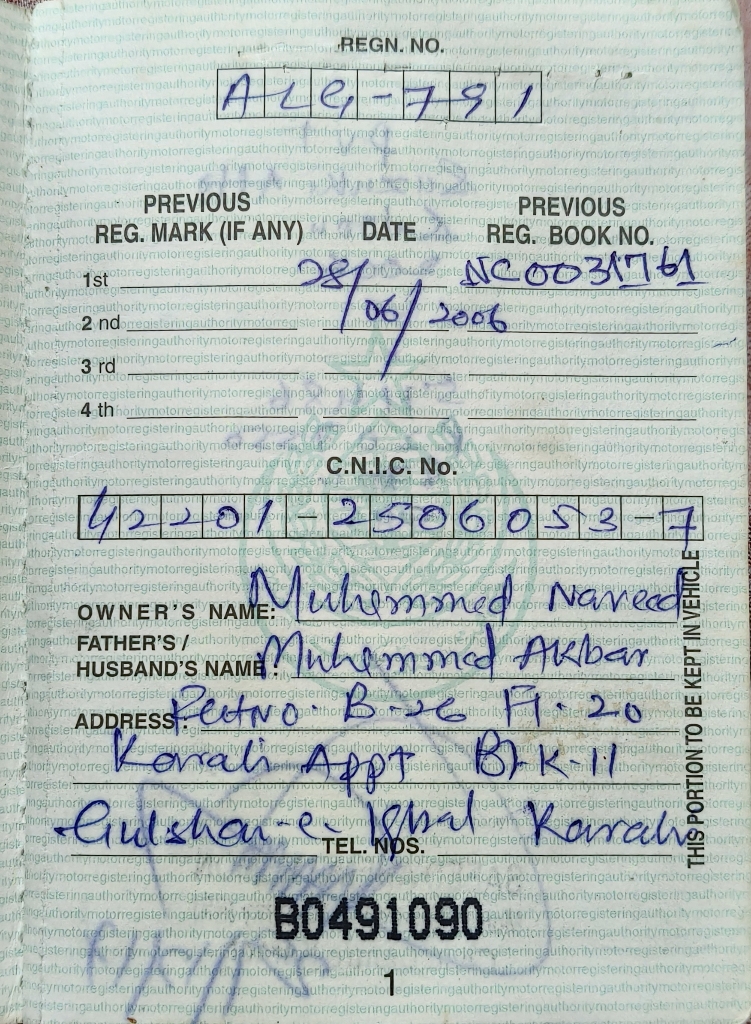 REGN. NO.
ALG-791
PREVIOUS REG. MARK (IF ANY) DATE PREVIOUS REG. BOOK NO.
1st 28/06/2006 NC0031761
2 nd
3 rd
4 th
C.N.I.C. No.
42201-2506053-7
OWNER'S NAME: Muhammad Naveed
FATHER'S /
HUSBAND'S NAME: Muhammad Akbar
ADDRESS: B-26 Fl-20
Karachi Appt Blk-11
Gulshan-e-Iqbal Karachi
TEL. NOS.
B0491090
1
THIS PORTION TO BE KEPT IN VEHICLE